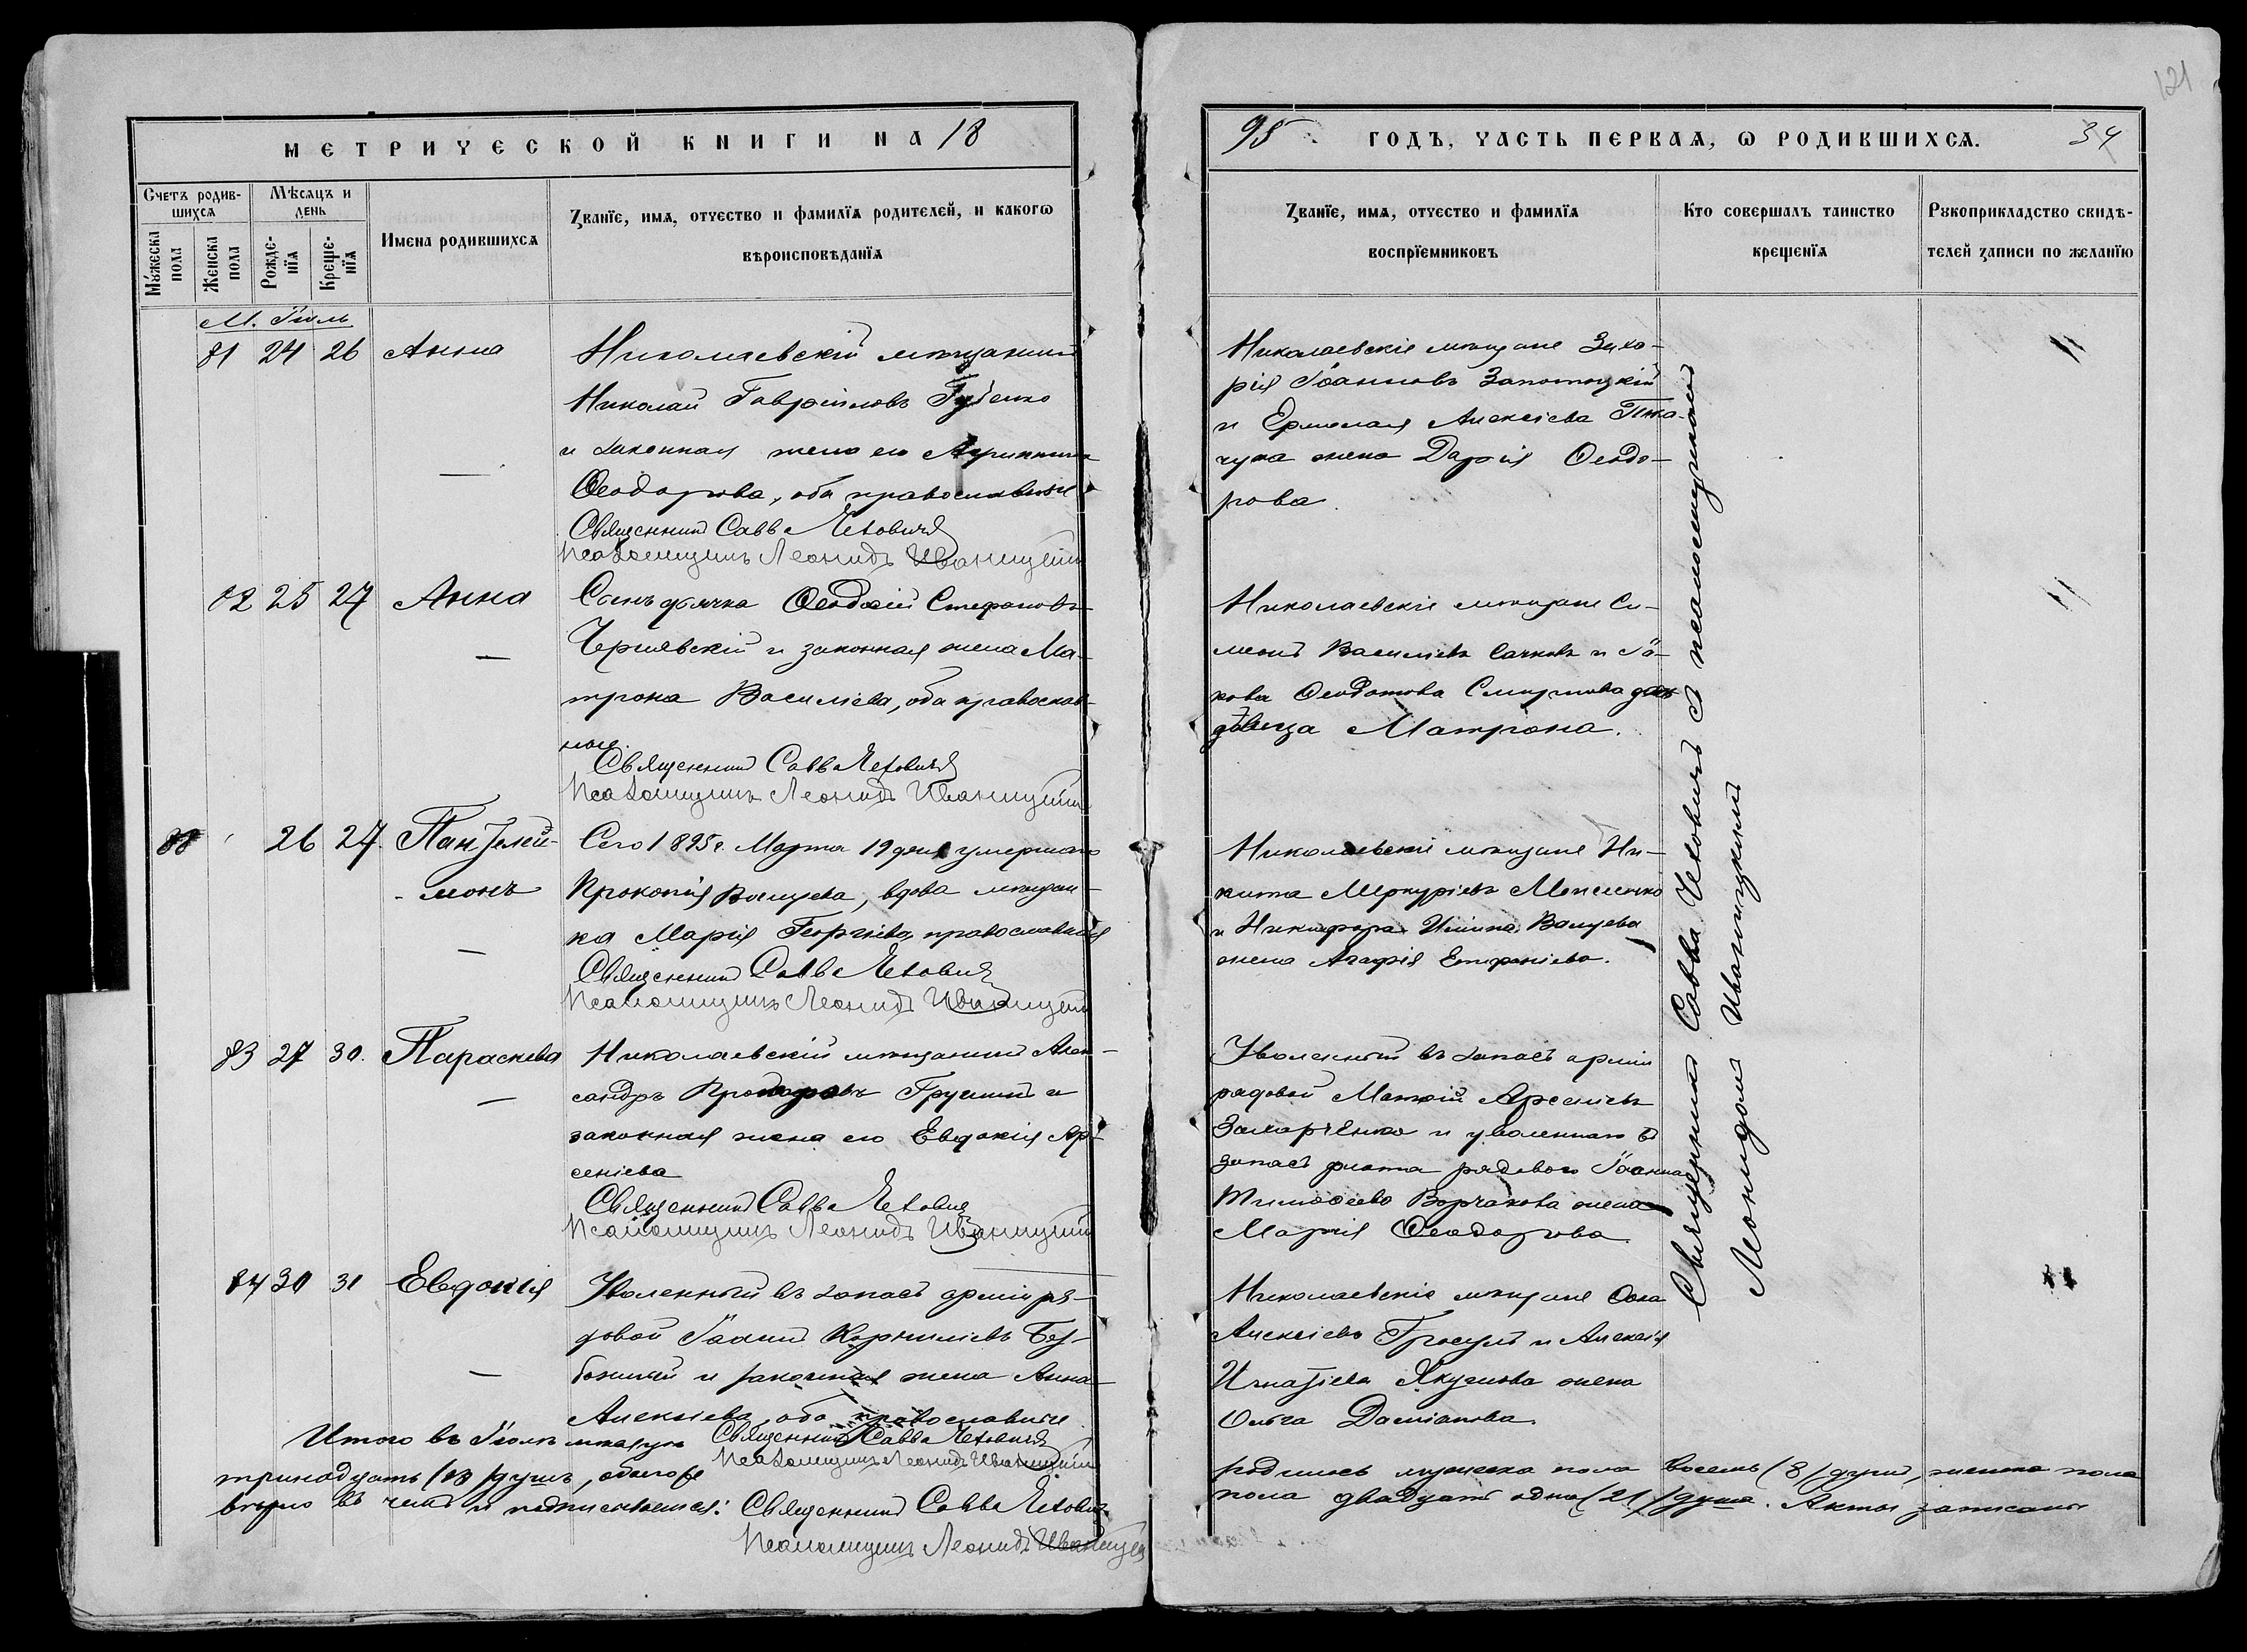 121
МЕТРИЧЕСКОЙ КНИГИ НА 18
95 ГОДЪ, ЧАСТЬ ПЕРВАЯ, Ѡ РОДИВШИХСЯ. 34
Счетъ родив-
шихся
Мѣсяцъ и
день
Мужеска
пола
Женска
пола
Рожде-
нїя
Креще-
нїя
Имена родившихся
Званїе, имя, отчество и фамилїя родителей, и какогѡ
вѣроисповѣданїя
Званїе, имя, отчество и фамилїя
воспрїемниковъ
Кто совершалъ таинство
крещенїя
Рукоприкладство свидѣ-
телей записи по желанїю
М. Іюль
81 24 26 Анна
Николаевскій мѣщанинъ
Николай Гавріиловъ Губенко
и законная жена его
Ѳеодорова, оба православные
Священникъ Савва Чеховичъ
Псаломщикъ Леонидъ Иваницкій
Николаевскіе мѣщане Заха-
рія Іоанновъ Запотоцкій
и Ермолая Алексіева Тка-
чука жена Дарія Ѳеодо-
рова.
82 25 27 Анна
Сынъ дьячка Ѳеодосій Стефановъ
Чернявскій и законная жена Ма-
трона Василіева, оба православ-
ные.
Священникъ Савва Чеховичъ
Псаломщикъ Леонидъ Иваницкій
Николаевскіе мѣщане Си-
меонъ Василіевъ Сачковъ и Іа-
кова Ѳеодотова Смирнова
дѣвица Матрона.
88 26 27 Пантелей-
монъ
Сего 1895 г. Марта 19 дня умершаго
Прокопія Валуева, вдова мѣщан-
ка Марія Георгіева, православная
Священникъ Савва Чеховичъ
Псаломщикъ Леонидъ Иваницкій
Николаевскіе мѣщане Ни-
кита Меркуріевъ
и Никифора Валуева
жена Агафія Епифаніева.
83 27 30 Параскева
Николаевскій мѣщанинъ Алек-
сандръ и
законная жена его Евдокія Ар-
сеніева
Священникъ Савва Чеховичъ
Псаломщикъ Леонидъ Иваницкій
Уволенный въ запасъ арміи
рядовой Матѳій Арсеніевъ
и уволеннаго въ
запасъ флота рядового Іоанна
Тимоѳеева Ворчакова жена
Марія Ѳеодорова.
84 30 31 Евдокія
Уволенный въ запасъ арміи ря-
довой Іоаннъ Корниліевъ Без-
божный и законная жена Анна
Алексіева, оба православные
Священникъ Савва Чеховичъ
Псаломщикъ Леонидъ Иваницкій
Николаевскіе мѣщане Ѳома
Алексіевъ Гросулъ и Алексія
Игнатіева Якунова жена
Ольга Даміанова.
Священникъ Савва Чеховичъ съ псаломщикомъ
Леонидомъ Иваницкимъ
Итого въ Іюлѣ мѣсяцѣ родилось мужеска пола восемь (8) душъ, женска пола
тринадцать (13) душъ, обоего пола двадцать одна (21) душа. Акты записаны
вѣрно въ чемъ и подписываемся: Священникъ Савва Чеховичъ
Псаломщикъ Леонидъ Иваницкій